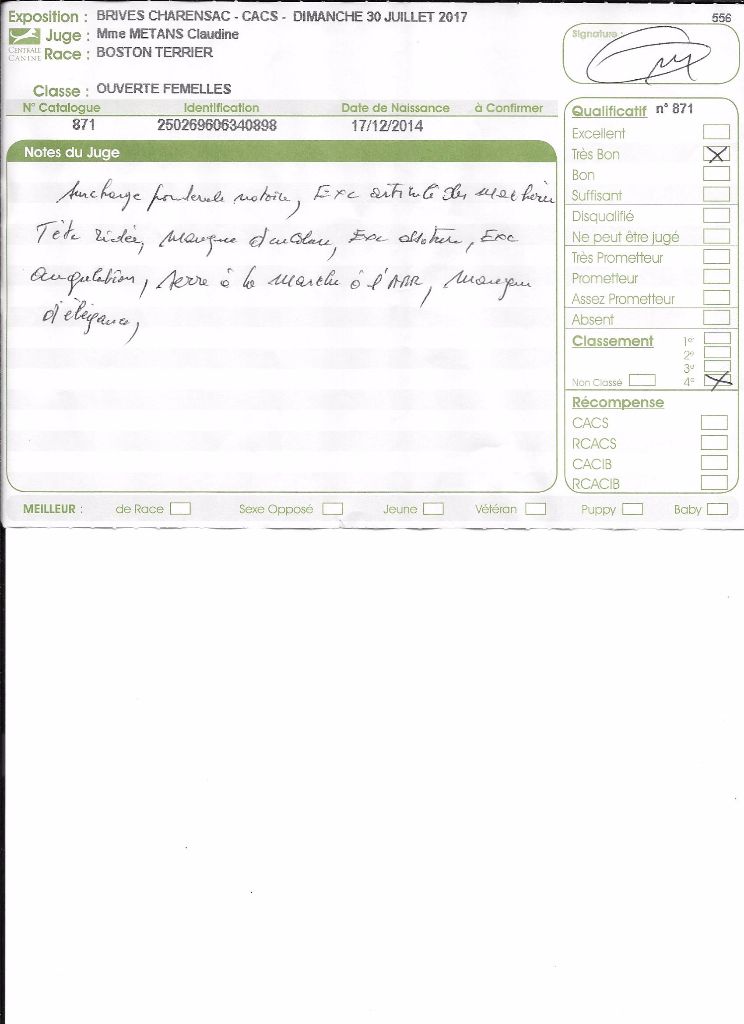 Exposition : BRIVES CHARENSAC - CACS - DIMANCHE 30 JUILLET 2017
556
Juge : Mme METANS Claudine
CENTRALE CANINE
Race : BOSTON TERRIER
Signature
Classe : OUVERTE FEMELLES
N° Catalogue Identification Date de Naissance à Confirmer
871 250269606340898 17/12/2014
Notes du Juge
Surcharge pondérale notoire, Exc articulé des machoires
Tête ridée, manque d'encolure, Exc ossature, Exc
angulation, serre à la marche à l'ARR, manque
d'élégance,
Qualificatif n° 871
Excellent
Très Bon
Bon
Suffisant
Disqualifié
Ne peut être jugé
Très Prometteur
Prometteur
Assez Prometteur
Absent
Classement 1er
2e
3e
Non Classé 4e
Récompense
CACS
RCACS
CACIB
RCACIB
MEILLEUR : de Race Sexe Opposé Jeune Vétéran Puppy Baby